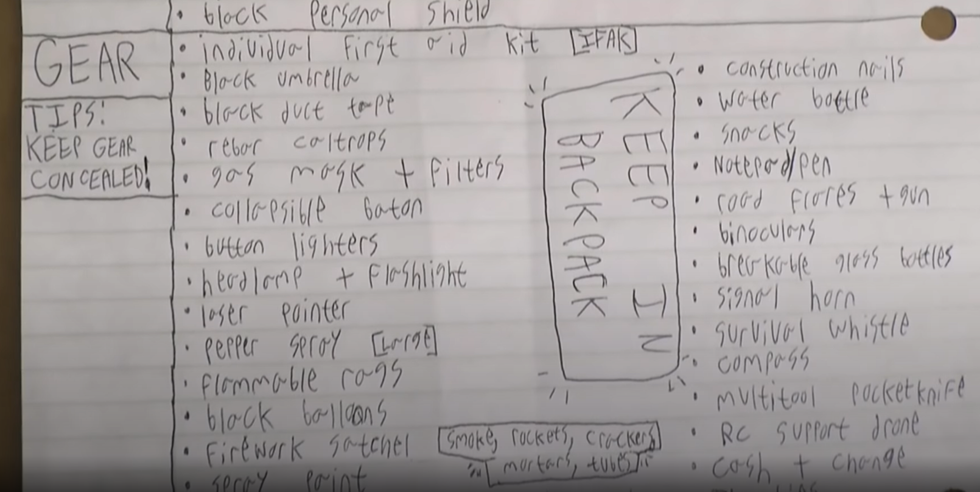 • black personal shield
GEAR
TIPS!
KEEP GEAR
CONCEALED!
• individual first aid kit [IFAK]
• Black umbrella
• black duct tape
• rebar caltrops
• gas mask + filters
• collapsible baton
• button lighters
• headlamp + flashlight
• laser pointer
• pepper spray [Large]
• flammable rags
• black balloons
• firework satchel [smoke, rockets, crackers
mortars, tubes]
• spray paint
KEEP IN
BACKPACK
• construction nails
• water bottle
• snacks
• Notepad/pen
• road flares + gun
• binoculars
• breakable glass bottles
• signal horn
• survival whistle
• compass
• multitool pocketknife
• RC support drone
• cash + change